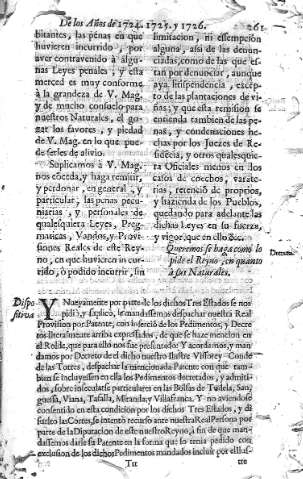 De los Años de 1724. 1725. y 1726. 261
bitantes, las penas en que
huvieren incurrido, por
aver contravenido à algu-
nas Leyes penales, y esta
merced es muy conforme
à la grandeza de V. Mag.
y de mucho consuelo para
nuestros Naturales, el go-
zar los favores, y piedad
de V. Mag. en lo que pue-
de serles de alivio.
Suplicamos à V. Mag.
nos cõceda, y haga remitir,
y perdonar, en general, y
particular, las penas pecu-
niarias, y personales de
qualesquiera Leyes, Preg-
maticas, Vandos, y Provi-
siones Reales de este Rey-
no, en que huvieren in cur-
rido, ò podido incurrir, sin
limitacion, ni essempcion
alguna, assi de las denun-
ciadas, como de las que es-
tan por denunciar, aunque
aya litispendencia, excep-
to de las plantaciones de vi-
ñas; y que esta remision se
entienda tambien de las pe-
nas, y condenaciones he-
chas por los Juezes de Re-
sidẽcia, y otros qualesquie-
ra Oficiales menos en los
casos de coechos, varate-
rias, retenciõ de proprios,
y hazienda de los Pueblos,
quedando para adelante las
dichas Leyes en su fuerza,
y vigor, que en ello &c.
Queremos se haga como lo
pide el Reyno, en quanto
à sus Naturales.
Decreto.
Dispo
sitiva
Y Nuevamente por parte de los dichos Tres Estados se nos
pidiò, y suplicò, le mandassemos despachar nuestra Real
Provision por Patente, con inserciõ de los Pedimentos, y Decre
tos literalmente arriba expressados, de que se haze mencion en
el Rolde, que para ello nos fue presentado: Y acordamos, y man-
damos por Decreto de el dicho nuestro Ilustre Visorey Conde
de las Torres, despachar la mencionada Patente con que tam-
bien se incluyessen en ella los Pedimentos decretados, y admiti-
dos, sobre insecular se particulares en las Bolsas de Tudela, San-
guessa, Viana, Tafalla, Miranda, y Villafranca. Y no aviendose
consentido en esta condicion por los dichos Tres Estados, y di
sueltas las Cortes, se intentò recurso ante nuestra Real Persona por
parte de la Diputacion de este nuestro Reyno, à fin de que man-
dassemos darle la Patente en la forma que lo tenia pedido con
exclusion de los dichos Pedimentos mandados incluir por el has-
Ttt